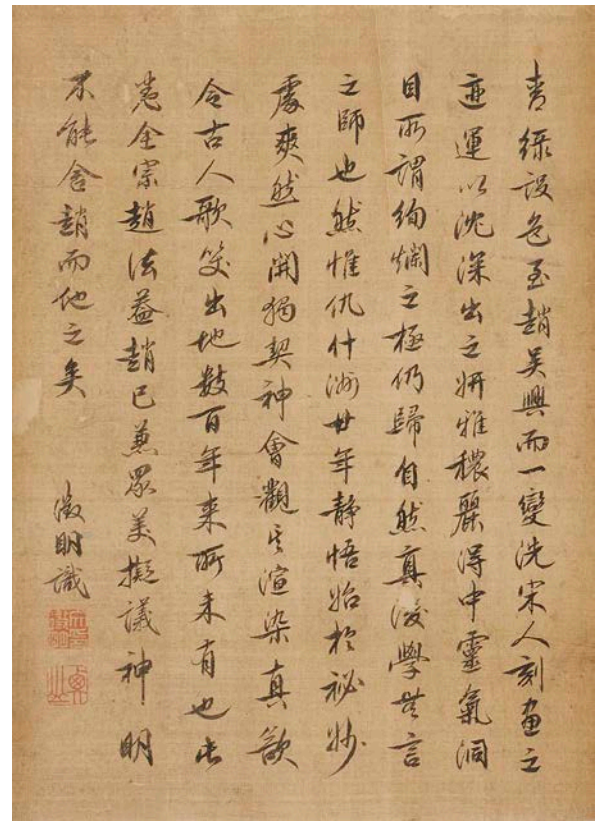 青綠設色至趙吳興而一變洗宋人刻畫之
迹運以沈深出之妍雅穠麗得中靈氣洞
目所謂絢爛之極仍歸自然真後學無言
之師也然惟仇什洲廿年静悟始於祕妙
處爽然心開獨契神會觀其渲染真欲
令古人歌笑出地數百年来所未有也此
卷全宗趙法蓋趙已兼眾美擬議神明
不能舍趙而他之矣
徵明識